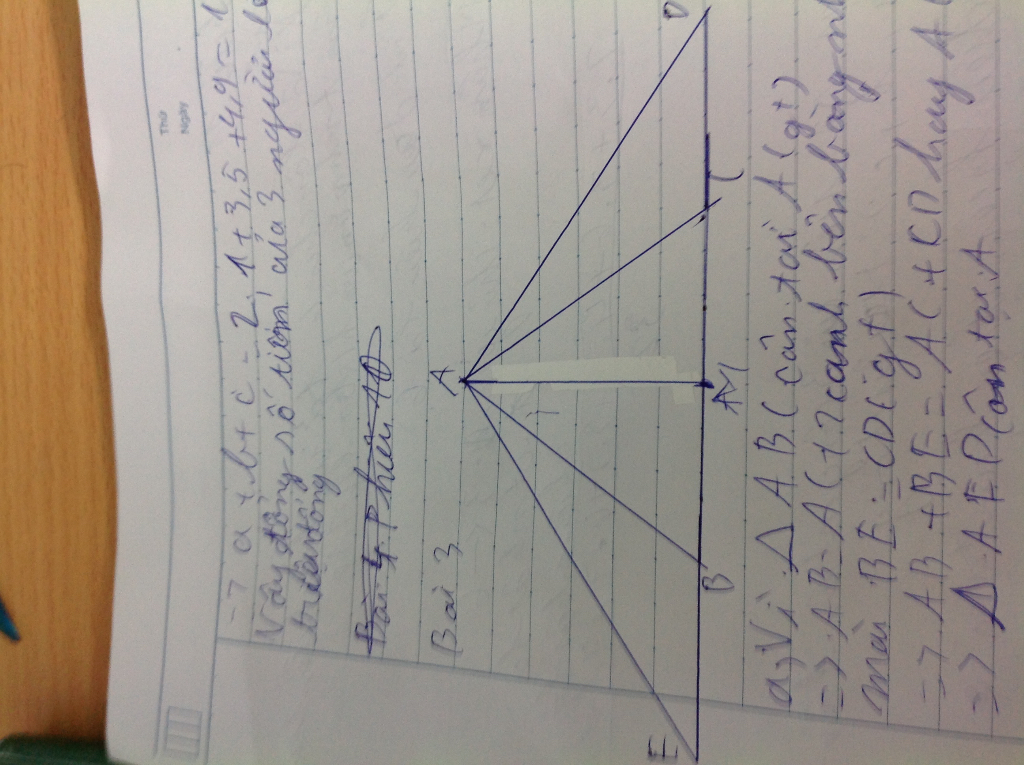 Thứ
Ngày
=> a + b + c = 2,1 + 3,5 + 4,9 = 1
Vậy tổng số của 3 người
Bài 4 Phiếu 10
Bài 3
A
E
B
M
C
D
a, Vì Δ AB ( cân tại A (gt)
=> AB = AC (+ 2 cạnh bên bằng
mà BE = CD (gt)
=> AB + BE = AC + CD hay A
=> Δ AED cân tại A